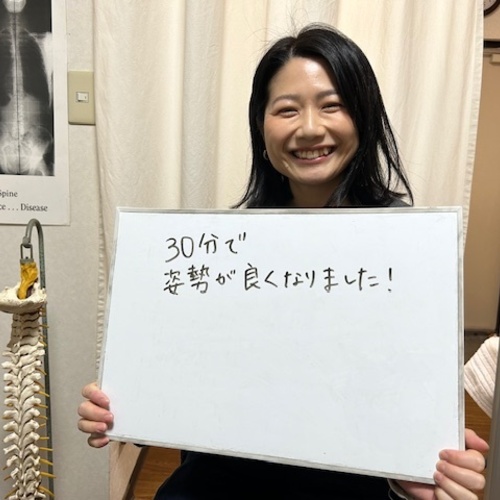 Spine
ce . . . Disease
30分で
姿勢が良くなりました!